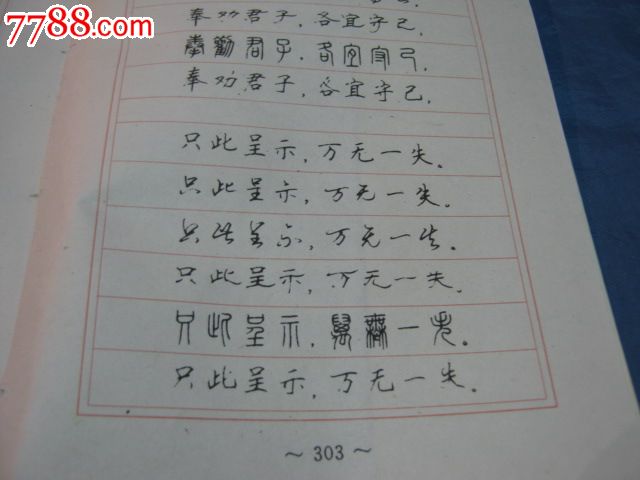 7788.com
奉劝君子，各宜守己，
奉勸君子，各宜守己，
奉劝君子，各宜守己，
只此呈示，万无一失。
只此呈示，万无一失。
只此呈示，万无一失。
只此呈示，万无一失。
只此呈示，萬無一失。
只此呈示，万无一失。
～303～